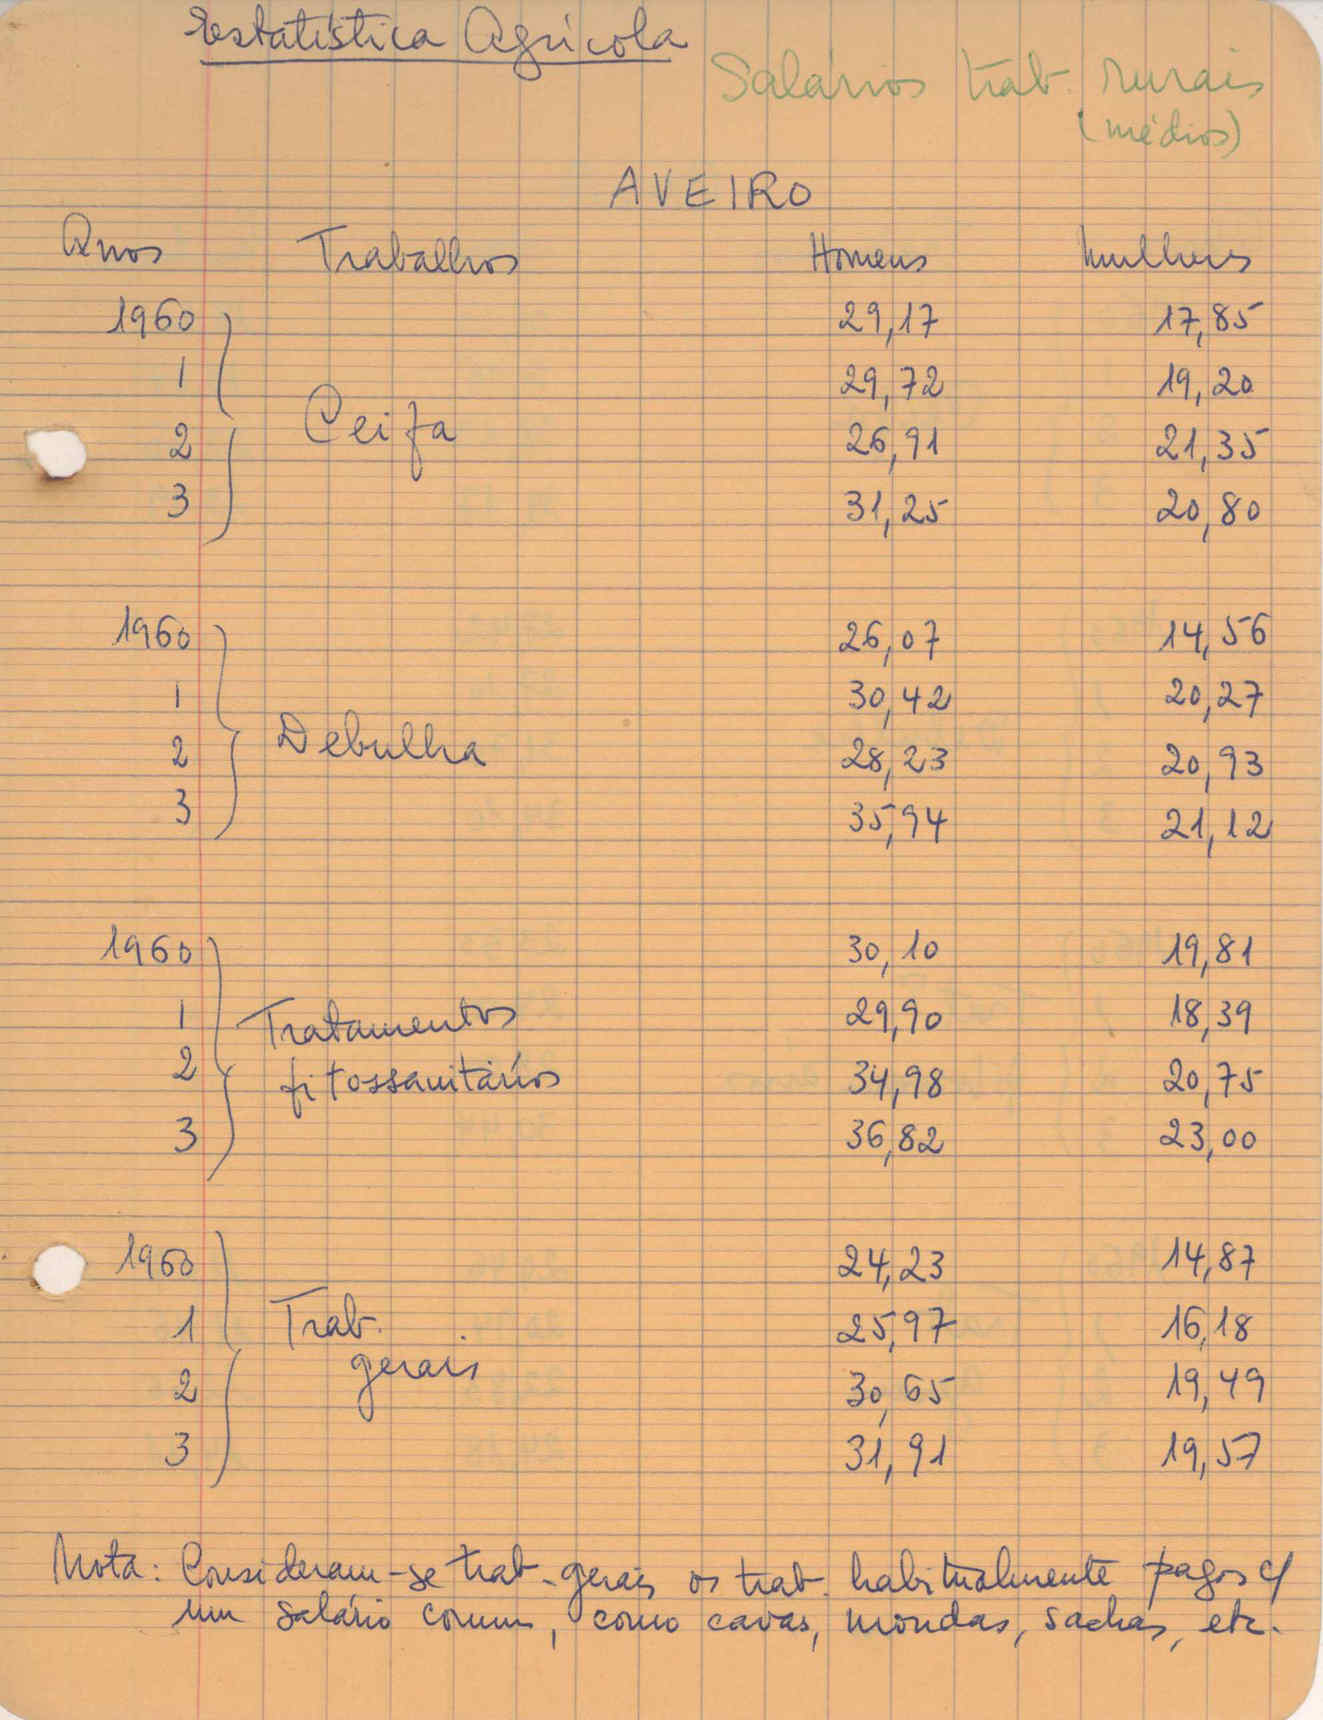 Estatística Agrícola
Salários trab. rurais
(médios)
AVEIRO
Anos Trabalhos Homens Mulheres
1960 29,17 17,85
1 29,72 19,20
Ceifa
2 26,91 21,35
3 31,25 20,80
1960 26,07 14,56
1 30,42 20,27
Debulha
2 28,23 20,93
3 35,94 21,12
1960 30,10 19,81
1 Tratamentos 29,90 18,39
2 fitossanitários 34,98 20,75
3 36,82 23,00
1960 24,23 14,87
1 Trab. 25,97 16,18
2 gerais 30,65 19,49
3 31,91 19,57
Nota: Consideram-se trab. gerais os trab. habitualmente pagos c/
um salário comum, como cavas, mondas, sachas, etc.